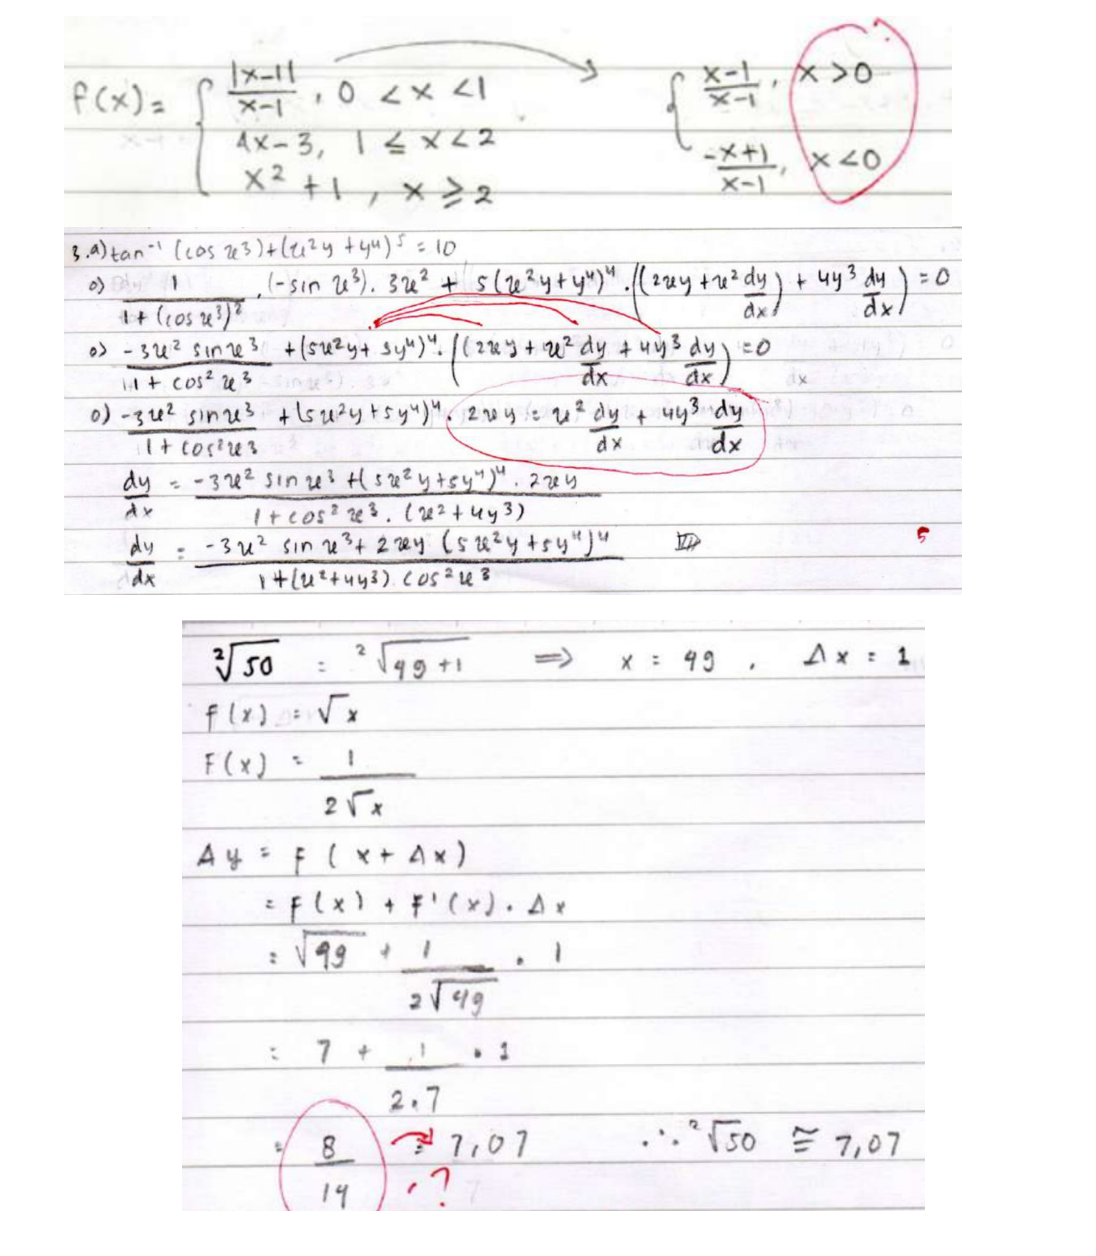 f(x) = { |x-1|/x-1 , 0 < x < 1 → { x-1/x-1 , x > 0
4x-3, 1 ≤ x < 2
-x+1/x-1 , x < 0
x² + 1 , x ≥ 2
3.a) tan⁻¹ (cos x³) + (x²y + y⁴)⁵ = 10
o) 1/1 + (cos x³)² . (-sin x³) . 3x² + 5(x²y + y⁴)⁴ . ((2xy + x² dy/dx) + 4y³ dy/dx) = 0
o) -3x² sin x³/1 + cos² x³ + (5x²y + 5y⁴)⁴ . ((2xy + x² dy/dx + 4y³ dy/dx) = 0
o) -3x² sin x³/1 + cos² x³ + (5x²y + 5y⁴)⁴ . 2xy = x² dy/dx + 4y³ dy/dx
dy/dx = -3x² sin x³ + (5x²y + 5y⁴)⁴ . 2xy/1 + cos² x³ . (x² + 4y³)
dy/dx = -3x² sin x³ + 2xy (5x²y + 5y⁴)⁴/1 + (x² + 4y³) . cos² x³ 5
²√50 = ²√49+1 ⇒ x = 49 , Δx = 1
f(x) = √x
F(x) = 1/2√x
Δy = f (x + Δx)
= f(x) + f'(x) . Δx
= √49 + 1/2√49 . 1
= 7 + 1/2.7 . 1
= 8/14 = 7,07 ∴ ²√50 ≅ 7,07
?